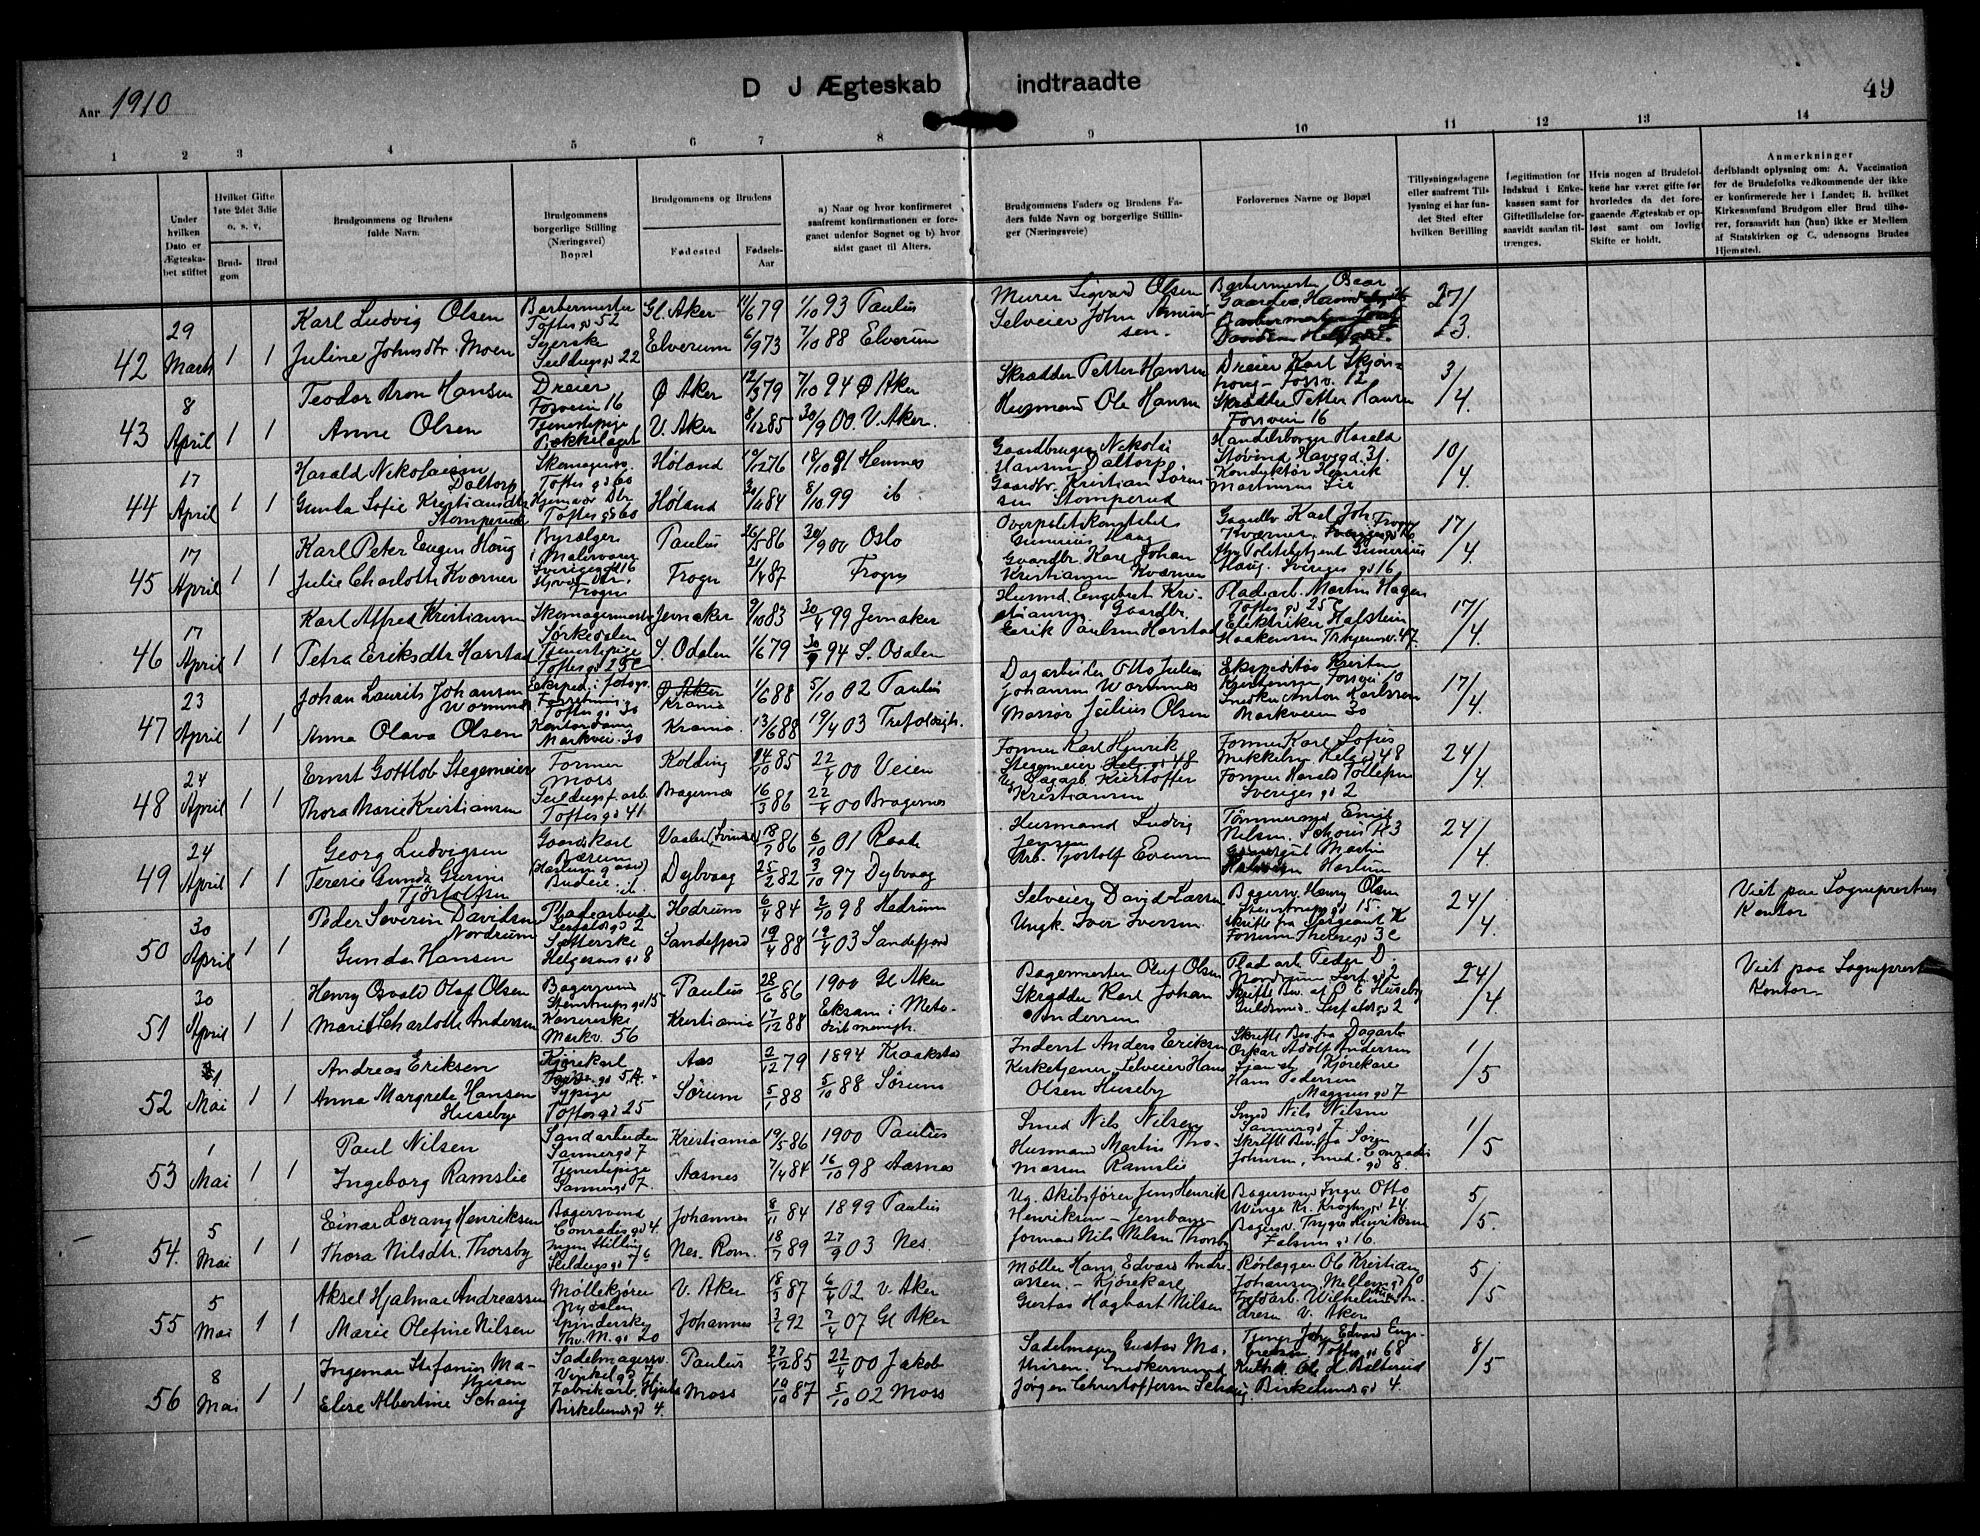 D J Ægteskab indtraadte
49
Aar 1910
1 2 3 4 5 6 7 8 9 10 11 12 13 14
Under hvilken Dato er Ægteskabet stiftet
Hvilket Gifte 1ste 2det 3die o. s. v,
Brudgom
Brud
Brudgommens og Brudens fulde Navn.
Brudgommens borgerlige Stilling (Næringsvei) Bopæl
Brudgommens og Brudens
Fødested
Fødsels-Aar
a) Naar og hvor konfirmeret saafremt konfirmationen er foregaaet udenfor Sognet og b) hvor sidst gaaet til Alters.
Brudgommens Faders og Brudens Faders fulde Navn og borgerlige Stillinger (Næringsveie)
Forlovernes Navne og Bopæl
Tillysningsdagene eller saafremt Tillysning ei har fundet Sted efter hvilken Bevilling
Legitimation for Indskud i Enkekassen samt for Giftetilladelse forsaavidt saadan tiltrænges.
Hvis nogen af Brudefolkene har været gifte før hvorledes da det foregaaende Ægteskab er opløst samt om lovligt Skifte er holdt.
Anmerkninger
deriblandt oplysning om: A. Vaccination for de Brudefolks vedkommende der ikke er konfirmerede her i Landet; B. hvilket Kirkesamfund Brudgom eller Brud tilhører, forsaavidt han (hun) ikke er Medlem af Statskirken og C. udensogns Brudes Hjemsted.
42 29 Marts 1 1
Karl Ludvig Olsen Barbermester Toftes gd 52 Gl. Aker 11/6 79 1/10 93 Paulus Murer Sigvard Olsen 27/3.
Juline Johnsdtr. Moen Syerske Seildugsgd 22 Elverum 6/9 73 7/10 88 Elverum Selveier John
43 8 April 1 1
Teodor Aron Hansen Dreier Fosveien 16 Ø Aker 12/3 79 7/10 94 Ø Aker Skrædder Petter Hansen Dreier Karl Fossv. 12 3/4.
Anne Olsen Tjenestepige Bækkelaget V. Aker 8/12 85 30/9 00 V. Aker. Husmand Ole Hansen Skrædder Petter Hansen Fosveien 16
44 17 April 1 1
Harald Nikolaisen Daltorp Skomagersv. Toftes gd 60 Høland 19/12 76 18/10 91 Hemnes Gaardbruger Nikolai Hansen Daltorp. Handelsborger Harald Støvind Havsgd. 31. 10/4
Gunda Sofie Kristiansdtr Stomperud Hjemmev. Dtr. Toftes gd 60 Høland 8/10 99 ib Gaardbr. Kristian Sørensen Stomperud Konduktør Henrik Martinsen Lie
45 17 April 1 1
Karl Peter Eugen Haug Byselger i Malervarer Sverigesgd 16 Paulus 26/5 86 30/9 00 Oslo Overpolitikonstabel Gunerius Haug Gaardbr Karl Joh. Kværner, Frogn 17/4.
Julie Charlotte Kværner Hjemv. Dtr. Frogn Frogn 21/4 87 Frogn Gaardbr. Karl Johan Kristiansen Kværner Politibetjent Gunerius Haug. Sveriges gd 16
46 17 April 1 1
Karl Alfred Kristiansen Skomagermester Sørkedalen Jevnaker 9/10 83 30/4 99 Jevnaker Husmd. Engebret Kristiansen Gaardbr. Pladearb. Martin Hagen Toftes gd 25C 17/4.
Petra Eriksdtr Harstad Tjenestepige Toftes gd 25C S. Odalen 1/6 79 30/9 94 S. Odalen Erik Paulsen Harstad Elektriker Hafstein Haakensen 47.
47 23 April 1 1
Johan Laurits Johansen Wormnes Eksped. i fotogr. Forretning Toftes gd 30 Ø Aker Krania 1/6 88 5/10 02 Paulus Dagarbeider Otto Julius Johansen Wormnes Ekspeditør Kristen Kristensen Fosvei 10 17/4.
Anna Olava Olsen Kontordame Markvei. 30 Krania. 13/6 88 19/4 03 Trefoldigh. Massør Julius Olsen Snedker Anton Karlssen Markveien 30
48 24 April 1 1
Ernst Gottlob Stegemeier Former Moss Kolding 24/10 85 22/4 00 Veien Former Karl Henrik Stegemeier Helg. gd 48 Former Karl Sofus Mikkelsen Helg. gd 48 24/4.
Thora Marie Kristiansen Seildugsf. arb. Toftes gd 41 Bragernæs 16/3 86 22/4 00 Bragernes Dagarb Kristoffer Kristiansen Former Harald Tollefsen Sveriges gd 2
49 24 April 1 1
Georg Ludvigsen Gaardskarl Bærum Vaaler (Svinndal) 18/7 86 6/10 01 Raade Husmand Ludvig Jensen Tømmermd Emil Nilsen. 24/4.
Teresie Gunda Gurine Tjøstolfsen (Haslum gaard) Budeie ib. Dybvaag 25/2 82 3/10 97 Dybvaag Arb. Tjostolf Evensen Martin Halvorsen Haslum
50 30 April 1 1
Peder Severin Davidsen Nordrum Pladearbeider Leirfaldsgd 2 Hedrum 6/4 84 2/10 98 Hedrum Selveier David Larsen Bagersv. Henry Olsen Steenstrups gd 15. 24/4. Viet paa Sogneprestens Kontor
Gunda Hansen Sætterske Helgesens gd 8 Sandefjord 19/4 88 19/4 03 Sandefjord Ungk. Iver Iversen. Skrifte fra Sergeant K Fossum Theresegd 3C
51 30 April 1 1
Henry Osvald Olaf Olsen Bagersvend Steenstrupsgd 15 Paulus 28/6 86 1900 Gl Aker Bagermester Oluf Olsen Pladearb Peder D. Nordrum Leirf. gd 2 24/4. Viet paa Sogneprestens Kontor
Marie Charlotte Andersen Kassererske Markv. 56 Kristiania 17/12 88 Eksam. i Metodistmenigh. Skrædder Karl Johan Andersen Skriftl. Bev. af O. E. Huseby Guldsmed. Leirfaldsgd 2
52 1 Mai 1 1
Andreas Eriksen Kjørekarl Aas 2/12 79 1894 Kraakstad Inderst Anders Eriksen Skriftl. Bev. fra Dagarb. Oskar Adolf Andersen 1/5
Anna Margrete Hansen Huseby Sypige Toftesgd 25 Sørum 5/1 88 5/10 88 Sørum Kirketjener, Selveier Hans Olsen Huseby Kjørekarl Hans Pedersen Magnusgd 7
53 1 Mai 1 1
Paul Nilsen Sandarbeider Sannergd 7 Kristiania 19/5 86 1900 Paulus Smed Nils Nilsen Smed Nils Nilsen Sannergd 7. 1/5
Ingeborg Ramslie Tjenestepige Sannergd 7. Aasnes 7/4 84 16/10 98 Aasnes Husmand Martin Thomassen Ramslie Skriftl Bev. fra Søren Johnsen, Smed, Conradis gd 8.
54. 5 Mai 1 1
Einar Lorang Henriksen Bagersvend Conradisgd 4. Johannes 8/11 84 1899 Paulus Ug. Skibsfører Jens Henrik Henriksen – Bagersvend Inge Otto Winge Kr. Kroghs gd 24. 5/5.
Thora Nilsdtr. Thorsby ingen Stilling Seildugsgd 7b Nes. Rom. 18/7 89 27/9 03 Nes. Jernbaneformand Nils Nilsen Thorsby Bagersv. Trygve Henriksen gd 16.
55 5 Mai 1 1
Aksel Hjalmar Andreassen Møllekjører Nydalen V. Aker 18/3 87 6/4 02 V. Aker Møller Hans Edvard Andreassen. – Kjørekarl Rørlægger Ole Kristian Johansen 5/5
Marie Olefine Nilsen Spinderske Thv. M. gd 20 Johannes 3/6 92 7/4 07 Gl Aker Gustav Hagbart Nilsen Wilhelm Andresen V. Aker
56 8 Mai 1 1
Ingemar Stefanius Mathisen Sadelmagersv. Verksgd 7 Paulus 27/12 85 22/4 00 Jakob Sadelmager Gustav Mathisen. Snedkersvend Edvard Toftes gd 68 8/5
Elise Albertine Schaug Fabrikarb. Hjula Birkelunds gd 4. Moss 10/10 87 5/10 02 Moss Jørgen Christoffersen Schaug Birkelunds gd 4.